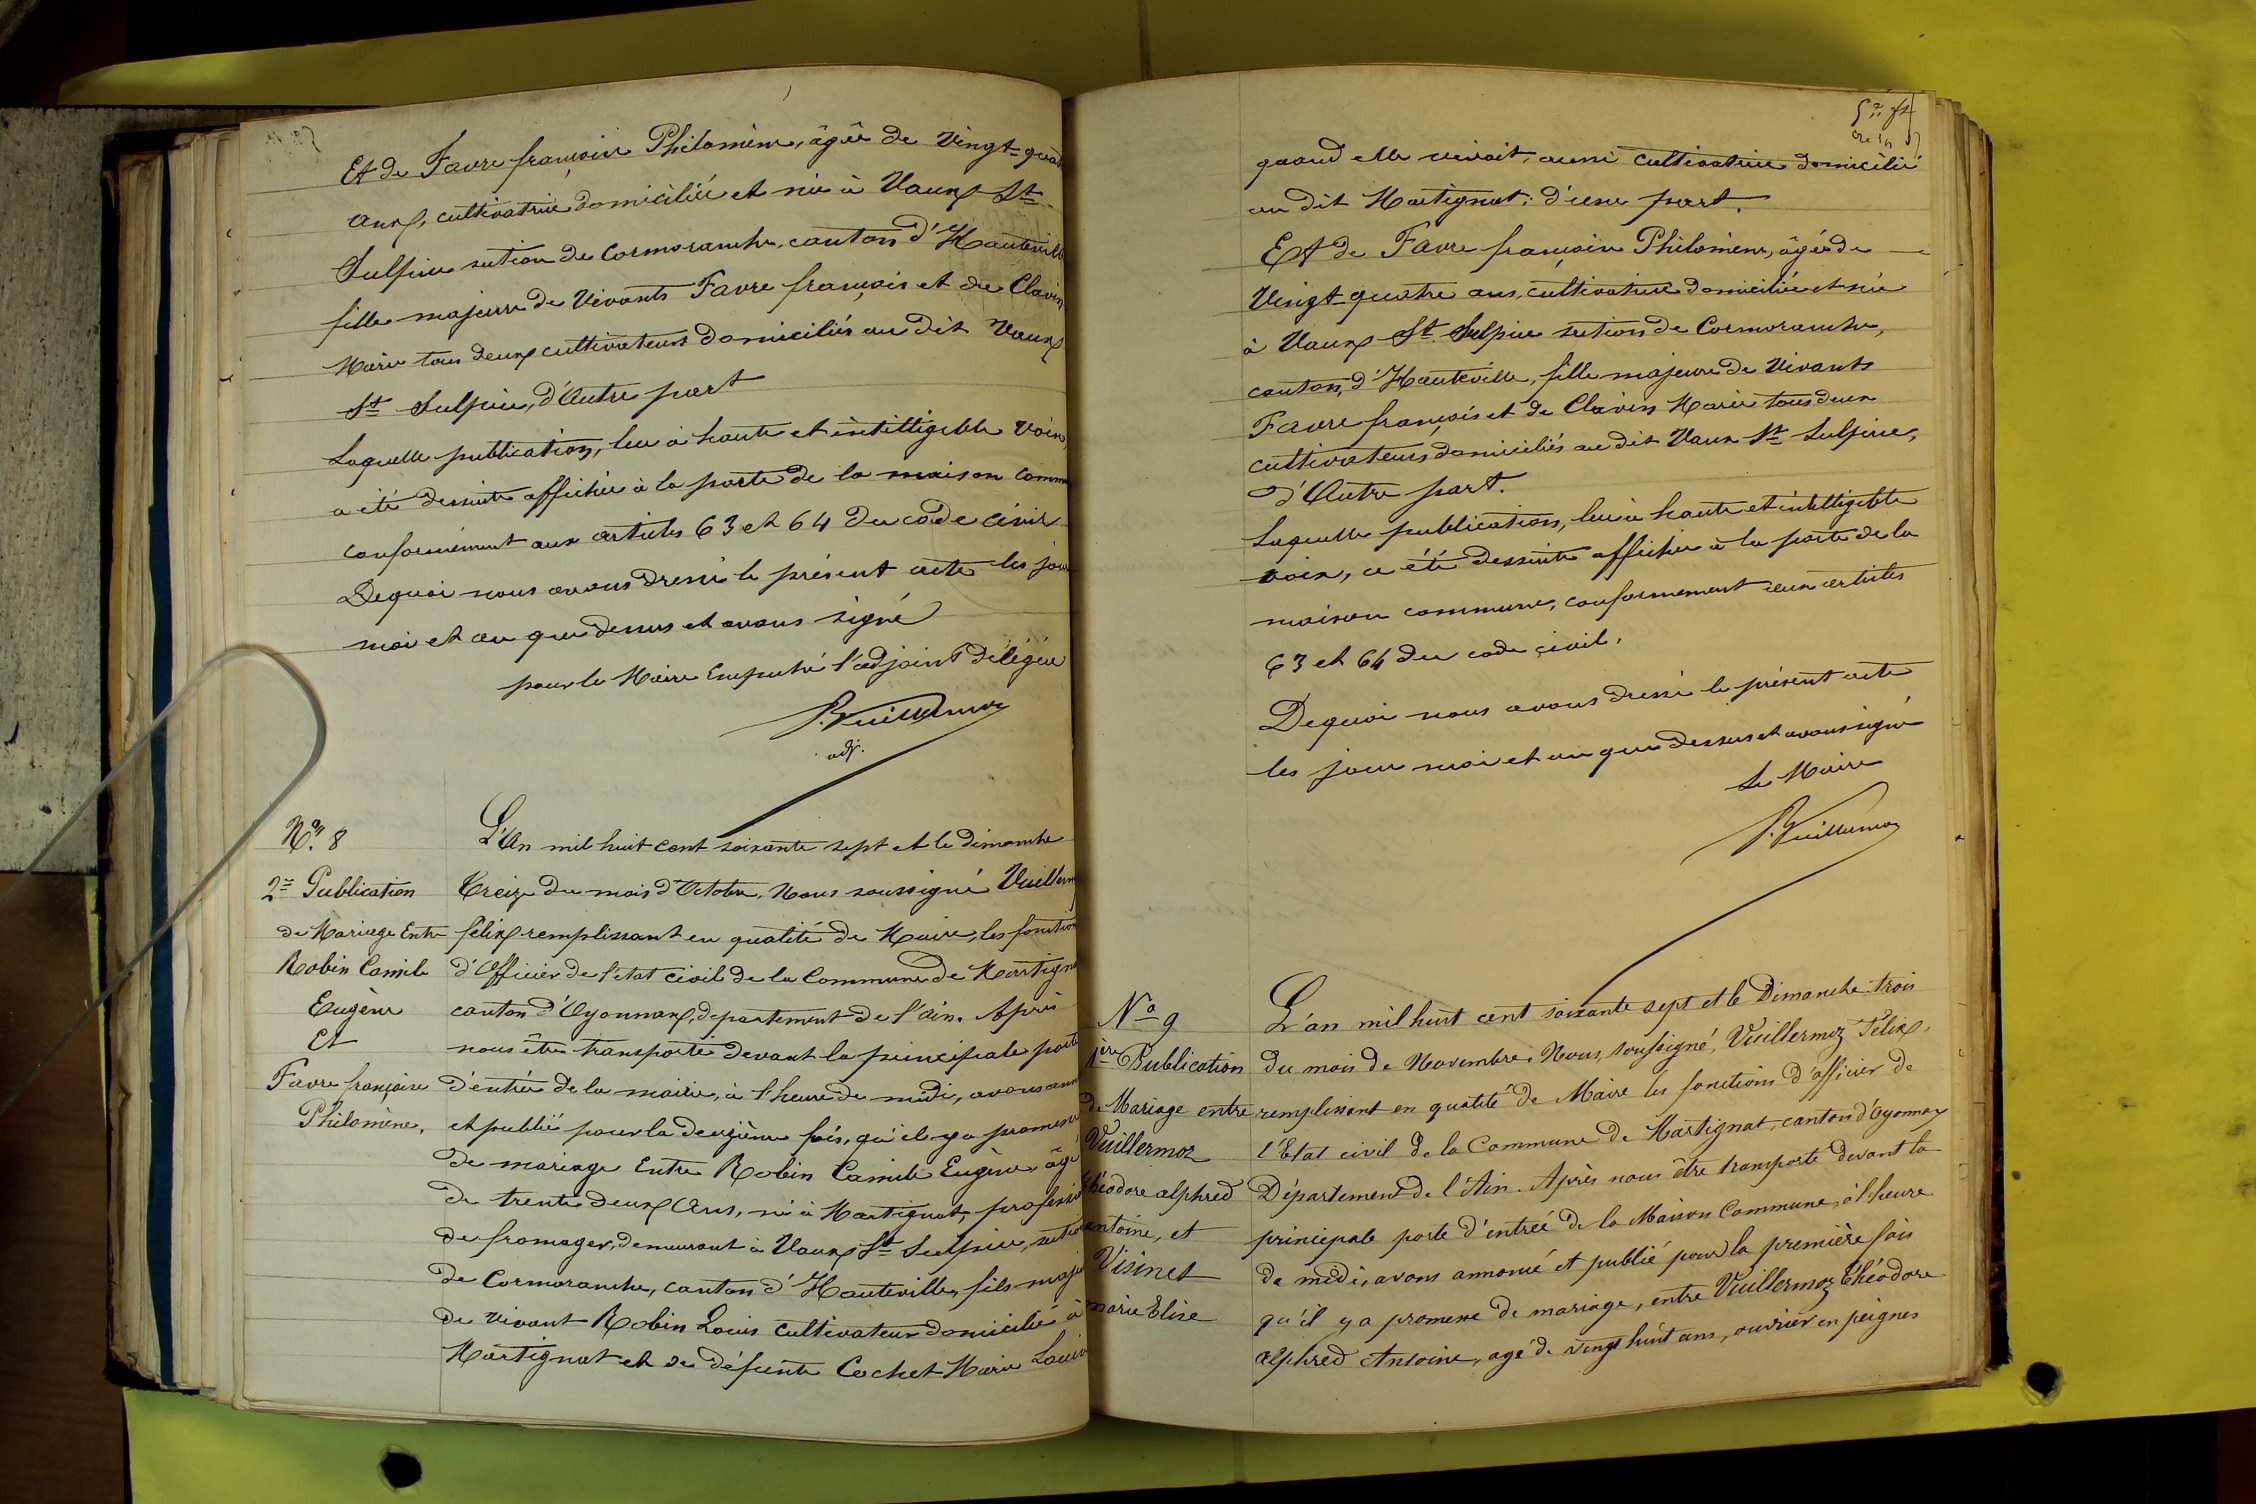 Et de Favre françoise Philomène, âgée de Vingt-quatre
ans, cultivatrice domiciliée et née à Vaux St
Sulpice section de Cormoranche, canton d'Hauteville
fille majeure de Vivants Favre français et de Claviès
Marie tous deux cultivateurs domiciliés au dit Vaux
St Sulpice, d'Autre part
Laquelle publication, lue à haute et intelligible Voix,
a été dessuite affichée à la porte de la maison comm
conformément aux articles 63 et 64 du code civil
Dequoi nous avons dressé le présent acte les jour
moi et an que dessus et avons signé
pour le Maire Empeché l'adjoint délégué
P. Vuillermoz
adj.
No. 8
2e Publication
de Mariage Entre
Robin Camile
Eugène
Et
Favre françoise
Philomène,
L'An mil huit cent soixante sept et le dimanche
Treize du mois d'Octobre, Nous soussigné Vuillerm
félix remplissant en qualité de Maire, les fonction
d'Officier de l'état civil de la Commune de Martigna
canton d'Oyonnax, departement de l'ain. Après
nous être transporté devant la principale porte
d'entrée de la mairie, à l'heure de midi, avons ann
et publié pour la deuxième fois, qu'il y a promesse
de mariage Entre Robin Camile Eugène âgé
de trente deux Ans, né à Martignat, profession
de fromager, demeurant à Vaux St Sulpice, section
de Cormoranche, canton d'Hauteville, fils maje
de vivant Robin Louis cultivateur domicilié à
Martignat et de défunte Cochet Marie Louise
quand elle vivait, aussi cultivatrice domicilié
au dit Martignat; d'une part.
Et de Favre françoise Philomène, âgée de
Vingt-quatre ans, cultivatrice domiciliée et née
à Vaux St Sulpice section de Cormoranche,
canton, d'Hauteville, fille majeure de Vivants
Favre français et de Claviès Marie tous deux
cultivateurs domiciliés au dit Vaux St Sulpice,
d'Autre part.
Laquelle publication, lue à haute et intelligible
voix, a été dessuite affichée à la porte de la
maison commune, conformement aux articles
63 et 64 du code civil.
Dequoi nous avons dressé le présent acte
les jour moi et an que dessus et avons signé
Le Maire
P. Vuillermoz
No 9
1ère Publication
de Mariage entre
Vuillermoz
théodore alphred
antoine, et
Visinet
marie Elise
L'an mil huit cent soixante sept et le Dimanche trois
du mois de Novembre. Nous, soussigné, Vuillermoz Félix,
remplissant en qualité de Maire les fonctions d'officier de
l'Etat civil de la Commune de Martignat, canton d'Oyonnax
Département de l'Ain. Après nous être transporté devant la
principale porte d'entrée de la Maison Commune, à l'heure
de midi, avons annoncé et publié pour la première fois
qu'il y a promesse de mariage, entre Vuillermoz Théodore
alphred Antoine, agé de vingt huit ans, ouvrier en peignes